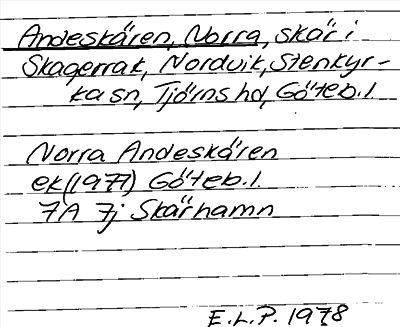 Andeskären, Norra, skär i
Skagerrak, Nordvik, Stenkyr-
ka sn, Tjörns hd, Göteb. l.
Norra Andeskären
ek (1977) Göteb. l.
7A 7j Skärhamn
E.L.P. 1978